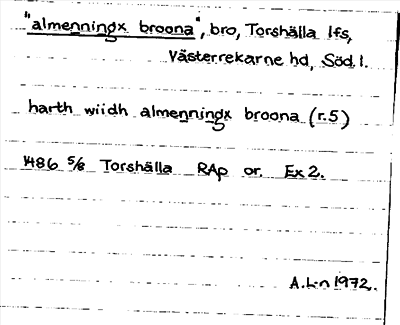 "almenningx broona", bro, Torshälla lfs,
Västerrekarne hd, Söd.l.
harth wiidh almenningx broona (r.5)
1486 5/8 Torshälla RAp or. Ex 2.
A.L-n 1972.